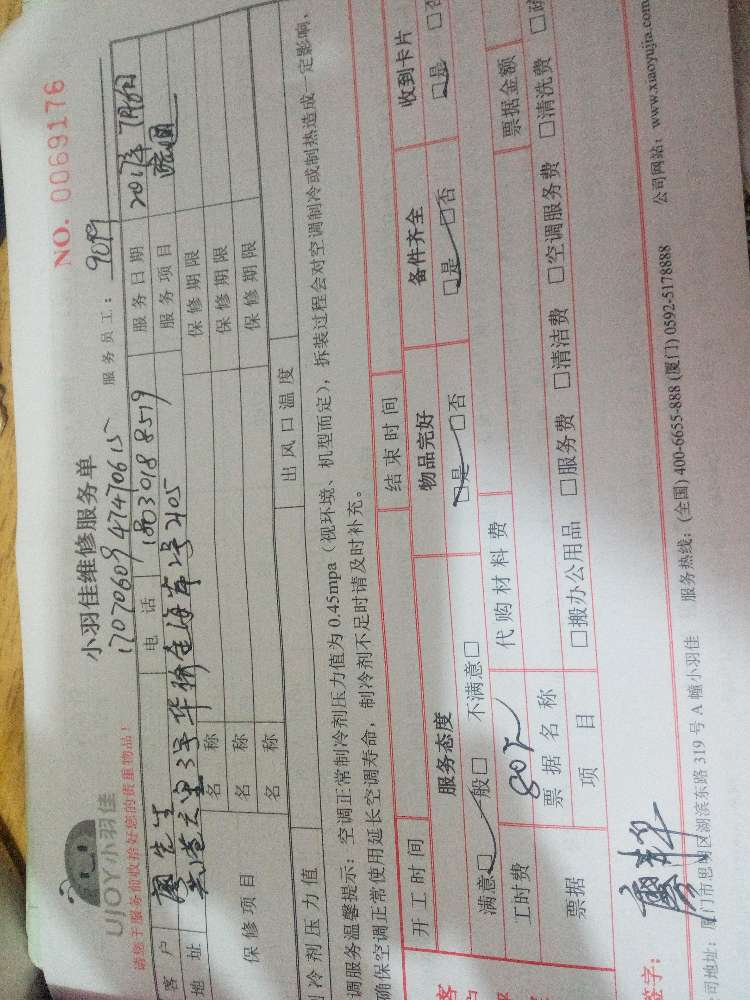 UJOY小羽佳
小羽佳维修服务单
NO. 0069176
请您于服务前收拾好您的贵重物品!
1707060947470615
服务员工: 9099
客户 廖先生 电话 18030188519 服务日期 2017年7月6日
地址 3号华侨 2号2105 服务项目
保修项目
名称 保修期限
名称 保修期限
名称 保修期限
制冷剂压力值 出风口温度
调服务温馨提示:空调正常制冷剂压力值为 0.45mpa(视环境、机型而定),拆装过程会对空调制冷或制热造成一定影响,
确保空调正常使用延长空调寿命,制冷剂不足时请及时补充。
开工时间 结束时间
服务态度 物品完好 备件齐全 收到卡片
满意□ 一般□ 不满意□ □是 □否 □是 □否 □是 □否
工时费 80元 代购材料费
票据 票据名称 票据金额
项目 □搬办公用品 □服务费 □清洁费 □空调服务费 □清洗费
签字:
司地址:厦门市思明区湖滨东路 319 号 A 幢小羽佳 服务热线:(全国) 400-6655-888 (厦门) 0592-5178888 公司网站:www.xiaoyujia.com